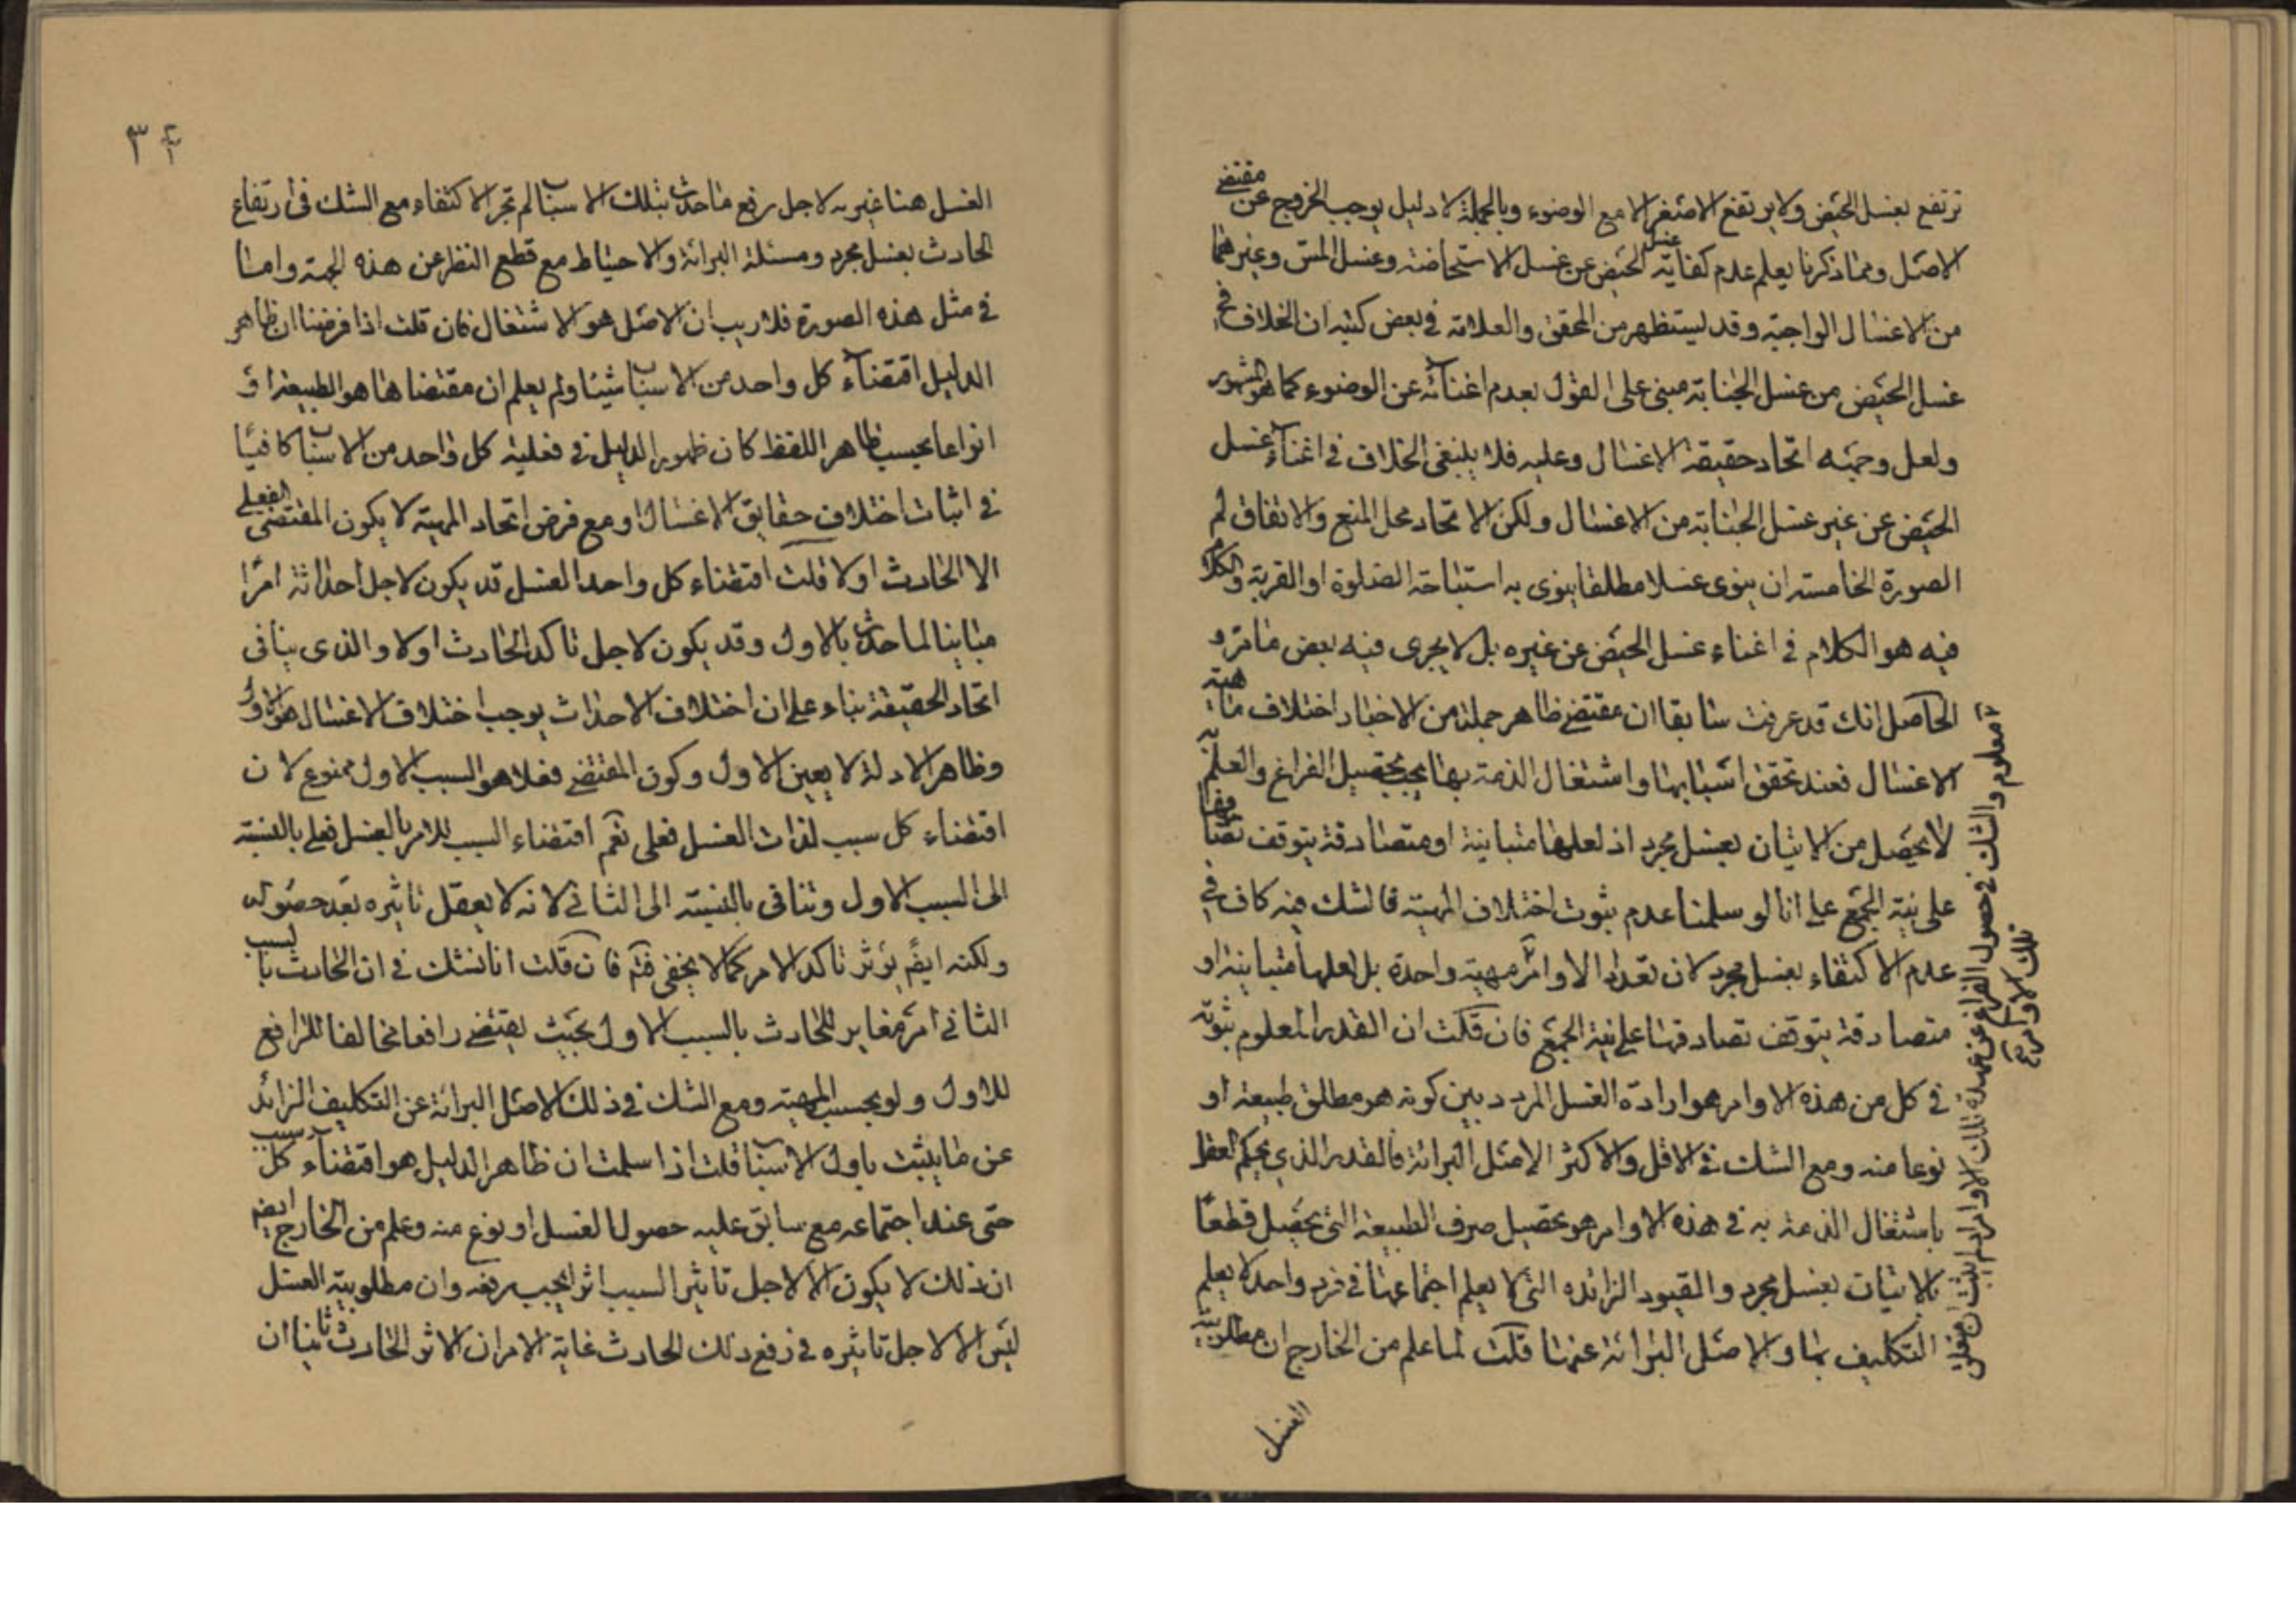 ترتفع بغسل الحيض ولا يرتفع الاصغر الا مع الوضوء وبالجملة لا دليل يوجب الخروج عن مقتضى
الاصل ومما ذكرنا يعلم عدم كفاية غسل الحيض عن غسل الاستحاضة وغسل المس وغيرهما
من الاغسال الواجبة وقد يستظهر من المحقق والعلامة في بعض كتبه ان الخلاف في
غسل الحيض من غسل الجنابة مبنى على القول بعدم اغنائه عن الوضوء كما هو المشهور
ولعل وجهه اتحاد حقيقة الاغسال وعليه فلا ينبغى الخلاف في اغناء غسل
الحيض عن غير غسل الجنابة من الاغسال ولكن الاتحاد محل المنع والاتفاق لم
الصورة الخامسة ان ينوى غسلا مطلقا ينوى به استباحة الصلوة او القربة والكلام
فيه هو الكلام في اغناء غسل الحيض عن غيره بل لا يجرى فيه بعض ما مر و
الحاصل انك قد عرفت سابقا ان مقتضى ظاهر جملة من الاخبار اختلاف ماهية
الاغسال فعند تحقق اسبابها واشتغال الذمة بها يجب تحصيل الفراغ والعلم به
لا يحصل من الاتيان بغسل مجرد اذ لعلها متباينة او متصادقة يتوقف تصادقها
على نية الجمع على انا لو سلمنا عدم ثبوت اختلاف المهية فالشك فيه كاف في
عدم الاكتفاء بغسل مجرد لان تعدد الاوامر مهية واحدة بل لعلها متباينة او
متصادقة يتوقف تصادقها على نية الجمع فان قلت ان القدر المعلوم ثبوته
في كل من هذه الاوامر هو ارادة الغسل المردد بين كونه هو مطلق طبيعة او
نوعا منه ومع الشك في الاقل والاكثر الاصل البرائة فالقدر الذي يحكم العقل
باشتغال الذمة به في هذه الاوامر هو تحصيل صرف الطبيعة التى يحصل قطعا
بالاتيان بغسل مجرد والقيود الزائده التى لا يعلم اجتماعها في فرد واحد لا يعلم
التكليف بها والاصل البرائة عنها قلت لما علم من الخارج ان مطلوبية
الغسل
معلوم والشك في حصول الفراغ عن عهدة تلك الاوامر لم يثبت ان متعلق
تلك الاوامر
٣٤
الغسل هنا غيريه لاجل رفع ما حدث بتلك الاسباب لم تجز الاكتفاء مع الشك في ارتفاع
الحادث بغسل مجرد ومسئلة البرائة والاحتياط مع قطع النظر عن هذه الجهة واما
في مثل هذه الصورة فلا ريب ان الاصل هو الاشتغال فان قلت اذا فرضنا ان ظاهر
الدليل اقتضاء كل واحد من الاسباب شيئا ولم يعلم ان مقتضاها هو الطبيعة او
انواعا بحسب ظاهر اللفظ كان ظهور الدليل في فعلية كل واحد من الاسباب كافيا
في اثبات اختلاف حقايق الاغسال او مع فرض اتحاد المهية لا يكون المقتضى الفعلى
الا الحادث اولا قلت اقتضاء كل واحد الغسل قد يكون لاجل احداثه امرا
مباينا لما حدث بالاول وقد يكون لاجل تاكد الحادث اولا والذى ينافى
اتحاد الحقيقة بناء على ان اختلاف الاحداث يوجب اختلاف الاغسال هو الاول
وظاهر الادلة لا يعين الاول وكون المقتضى فعلا هو السبب الاول ممنوع لان
اقتضاء كل سبب لذات الغسل فعلى نعم اقتضاء السبب للامر بالغسل فعلى بالنسبة
الى السبب الاول وتنافى بالنسبة الى الثانى لانه لا يعقل تاثيره بعد حصوله
ولكنه ايضم يؤثر تاكد الامر كما لا يخفى فتم فان قلت انا نشك في ان الحادث بالسبب
الثانى امر مغاير للحادث بالسبب الاول بحيث يقتضى رافعا مخالفا للرافع
للاول ولو بحسب المهية ومع الشك في ذلك الاصل البرائة عن التكليف الزائد
عن ما يثبت باول الاسباب قلت اذا سلمت ان ظاهر الدليل هو اقتضاء كل سبب
حتى عند اجتماعه مع سابق عليه حصول الغسل او نوع منه وعلم من الخارج ايضم
ان ذلك لا يكون الا لاجل تاثير السبب اثرا يجب رفعه وان مطلوبية الغسل
ليس الا لاجل تاثيره في رفع ذلك الحادث غاية الامر ان الاثر الحادث ثانيا ان